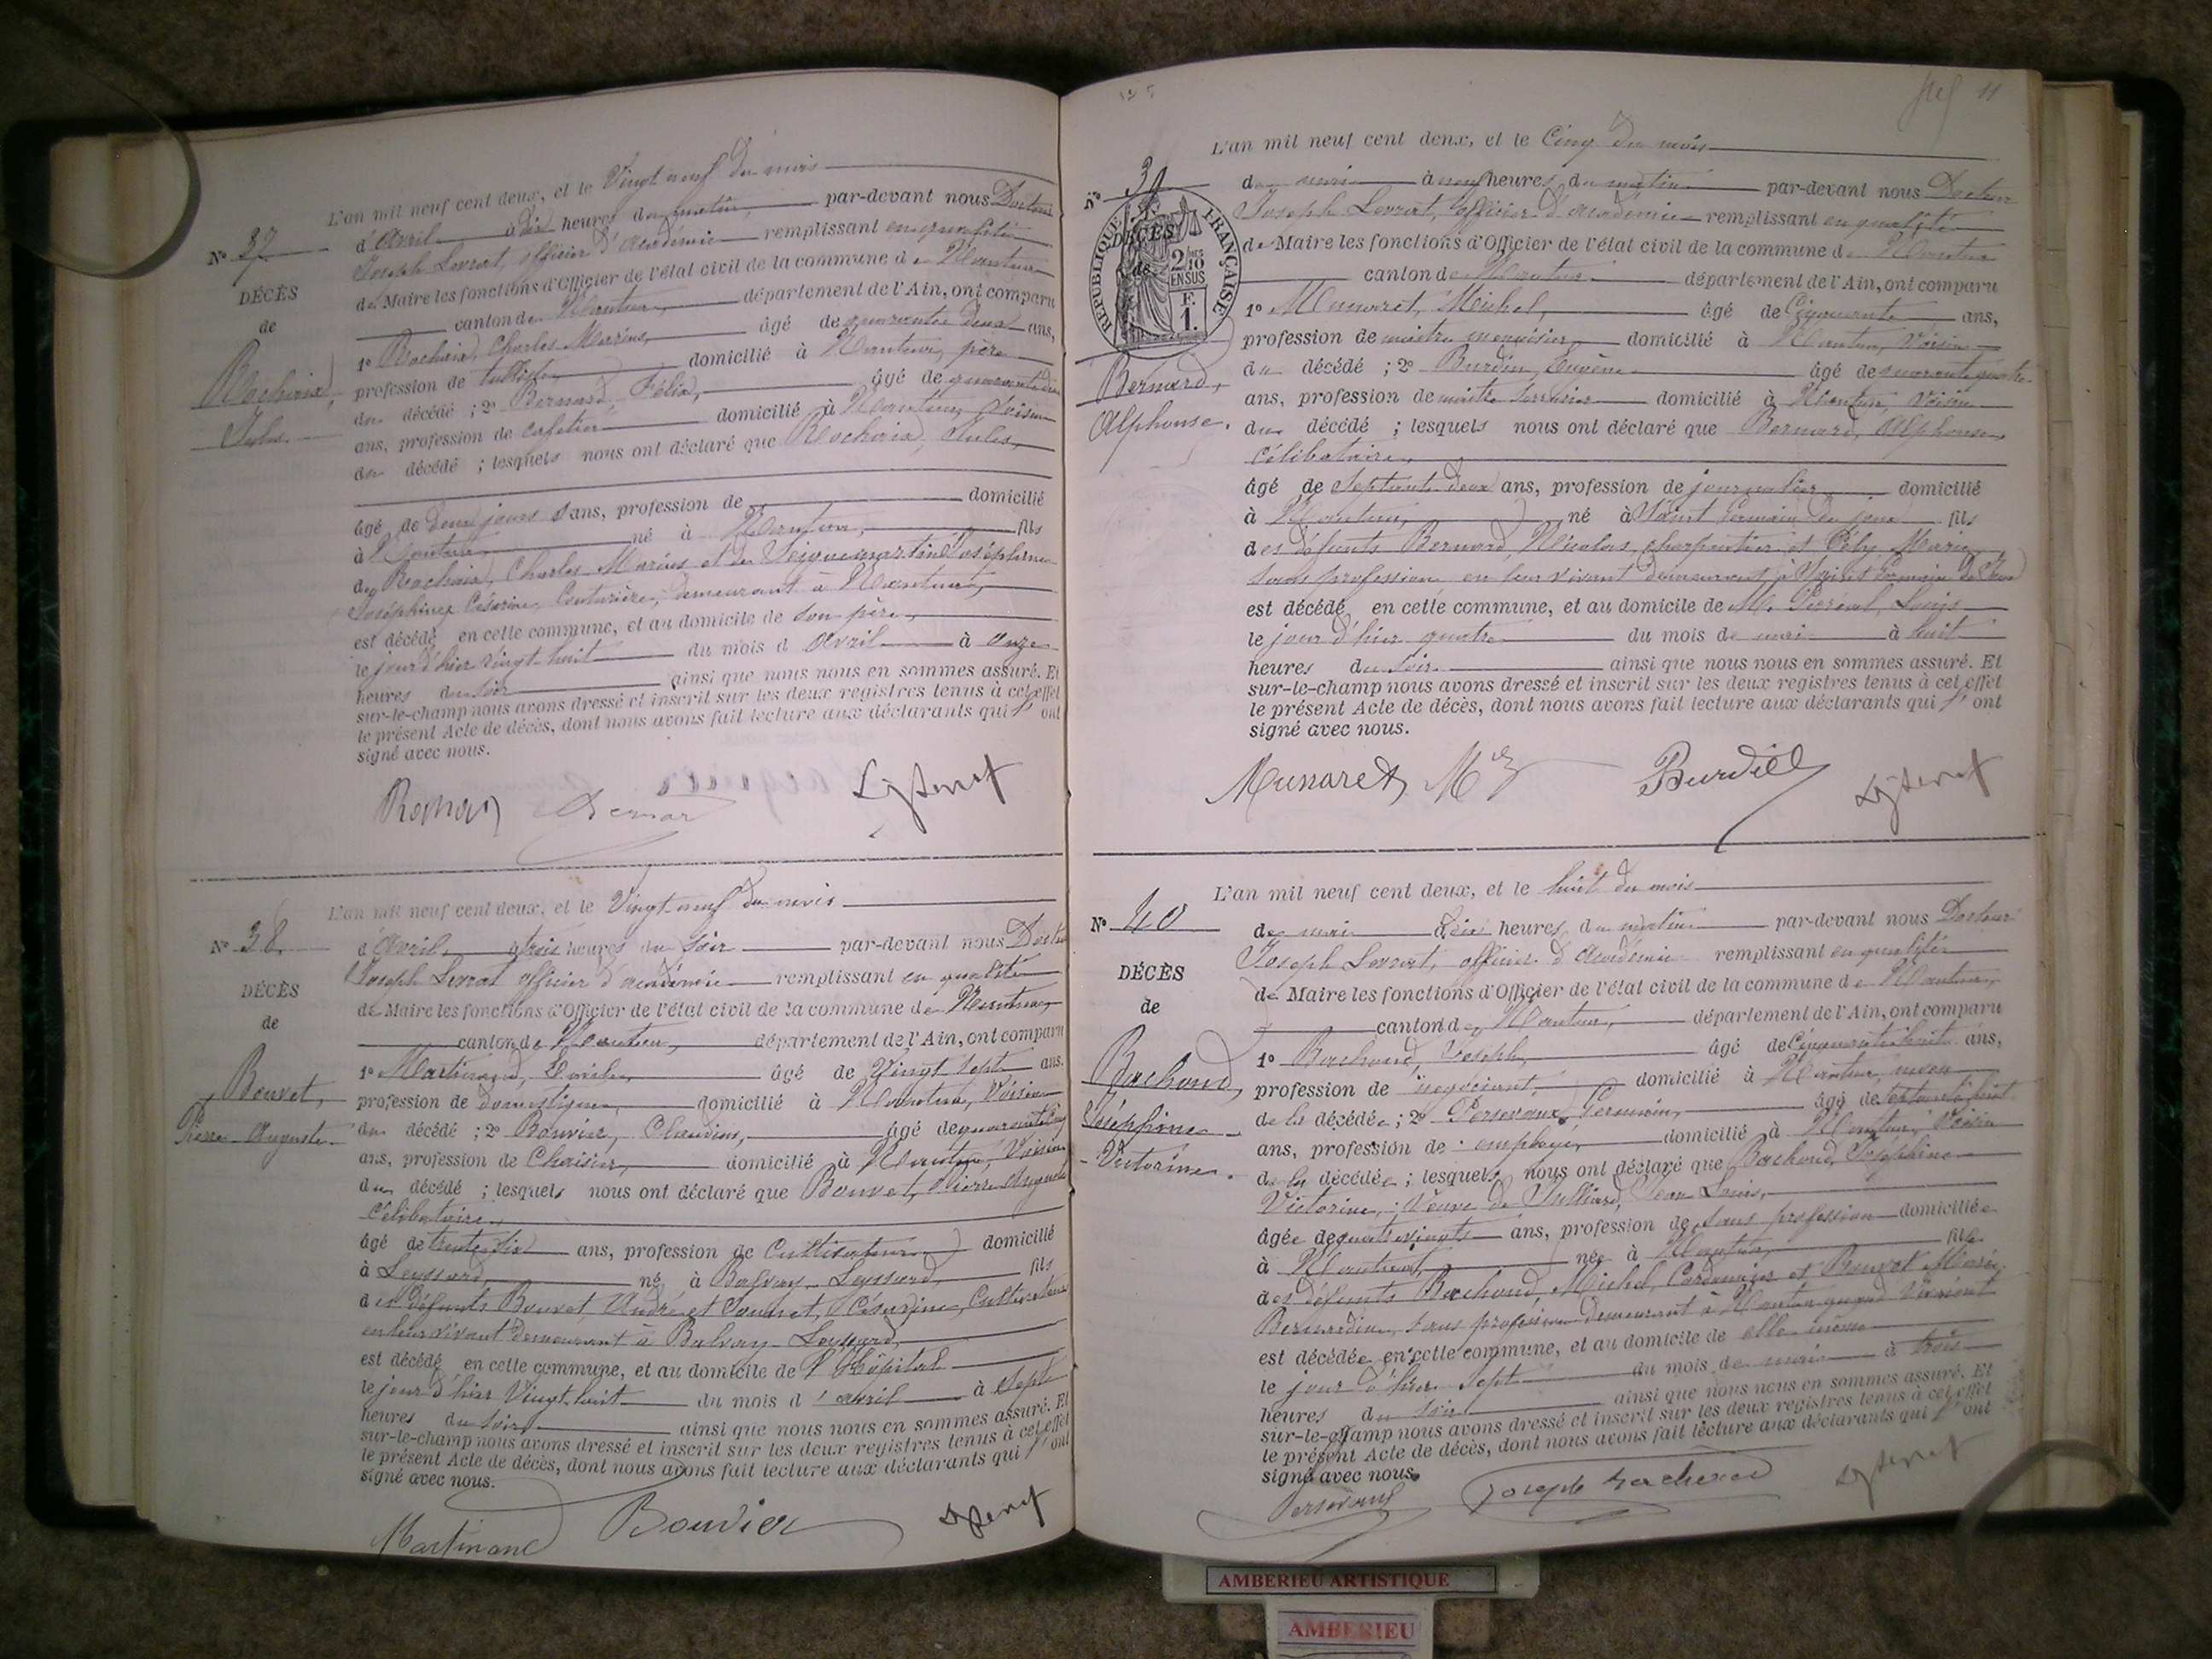 L'an mil neuf cent deux, et le Vingt neuf du mois
Nº 37
d'Avril à dix heures du matin, par-devant nous Docteur
Joseph Levrat, officier d'Académie remplissant en qualité
de Maire les fonctions d'Officier de l'état civil de la commune de Nantua
canton de Nantua, département de l'Ain, ont comparu
1º Rochaix, Charles Marius, âgé de quarante deux ans,
profession de domicilié à Nantua, père
du décédé ; 2º Bernard Félix, âgé de
ans, profession de cafetier domicilié à Nantua, Voisin
du décédé ; lesquels nous ont déclaré que Rochaix, Jules,
DÉCÈS
de
Rochaix,
Jules.
âgé de deux jours ans, profession de domicilié
à Nantua, né à Nantua, fils
de Rochaix, Charles Marius et de Joséphine
Joséphine Césarine, Couturière, demeurant à Nantua,
est décédé en cette commune, et au domicile de son père,
le jour d'hier vingt huit du mois d Avril à onze
heures du soir ainsi que nous nous en sommes assuré. Et
sur-le-champ nous avons dressé et inscrit sur les deux registres tenus à cet effet
le présent Acte de décès, dont nous avons fait lecture aux déclarants qui l'ont
signé avec nous.
L'an mil neuf cent deux, et le Vingt neuf du mois
Nº 38
d'Avril à trois heures du soir par-devant nous Docteur
Joseph Levrat officier d'académie remplissant en qualité
de Maire les fonctions d'Officier de l'état civil de la commune de Nantua,
canton de Nantua, département de l'Ain, ont comparu
1º Martinand, âgé de Vingt sept ans,
profession de domestique, domicilié à Nantua, Voisin
du décédé ; 2º Bouvier, Claudius, âgé de
ans, profession de Chaisier, domicilié à Nantua, Voisin
du décédé ; lesquels nous ont déclaré que Bouvet, Pierre Auguste
Célibataire,
DÉCÈS
de
Bouvet,
Pierre Auguste
âgé de trente six ans, profession de Cultivateur domicilié
à Leyssard, né à Balvay Leyssard, fils
des défunts Bouvet, André et Césarine, Cultivateurs
en leur vivant demeurant à Balvay Leyssard,
est décédé en cette commune, et au domicile de l'Hôpital
le jour d'hier Vingt huit du mois d'avril à Sept
heures du soir ainsi que nous nous en sommes assuré. Et
sur-le-champ nous avons dressé et inscrit sur les deux registres tenus à cet effet
le présent Acte de décès, dont nous avons fait lecture aux déclarants qui l'ont
signé avec nous.
Martinand Bouvier
11
L'an mil neuf cent deux, et le Cinq du mois
Nº 39
de mai à neuf heures du matin par-devant nous Docteur
Joseph Levrat, officier d'académie remplissant en qualité
de Maire les fonctions d'Officier de l'état civil de la commune de Nantua
canton de Nantua département de l'Ain, ont comparu
1º Munaret, Michel, âgé de Cinquante ans,
profession de maître menuisier domicilié à Nantua, Voisin
du décédé ; 2º Burdin, Eugène âgé de quarante quatre
ans, profession de maître serrurier domicilié à Nantua, Voisin
du décédé ; lesquels nous ont déclaré que Bernard, Alphonse,
Célibataire,
RÉPUBLIQUE FRANÇAISE
2/10 EN SUS
F. 1.
DÉCÈS
de
Bernard,
Alphonse.
âgé de Septante deux ans, profession de journalier domicilié
à Nantua, né à Saint Germain de Joux fils
des défunts Bernard, Nicolas, charpentier et Marie,
sans profession en leur vivant demeurant à Saint Germain de Joux
est décédé en cette commune, et au domicile de M. Louis
le jour d'hier quatre du mois de mai à huit
heures du soir ainsi que nous nous en sommes assuré. Et
sur-le-champ nous avons dressé et inscrit sur les deux registres tenus à cet effet
le présent Acte de décès, dont nous avons fait lecture aux déclarants qui l'ont
signé avec nous.
Munaret Burdin
L'an mil neuf cent deux, et le huit du mois
Nº 40
de mai à dix heures du matin par-devant nous Docteur
Joseph Levrat, officier d'académie remplissant en qualité
de Maire les fonctions d'Officier de l'état civil de la commune de Nantua,
canton de Nantua, département de l'Ain, ont comparu
1º Bachoud, Joseph, âgé de Cinquante huit ans,
profession de négociant, domicilié à Nantua, neveu
de la décédée ; 2º Germain, âgé de septante huit
ans, profession de employé, domicilié à Nantua, Voisin
de la décédée ; lesquels nous ont déclaré que Bachoud, Joséphine
Victorine, Veuve de Julliard, Jean Louis,
DÉCÈS
de
Bachoud,
Joséphine
Victorine.
âgée de quatre vingts ans, profession de sans profession domiciliée
à Nantua, née à Nantua, fille
des défunts Bachoud, Michel, Cordonnier et Bouvet Marie
Bernardine, sans profession demeurant à Nantua quand vivaient
est décédée en cette commune, et au domicile de elle même
le jour d'hier Sept du mois de mai à trois
heures du soir ainsi que nous nous en sommes assuré. Et
sur-le-champ nous avons dressé et inscrit sur les deux registres tenus à cet effet
le présent Acte de décès, dont nous avons fait lecture aux déclarants qui l'ont
signé avec nous.
Joseph Bachoud
AMBERIEU ARTISTIQUE
AMBERIEU